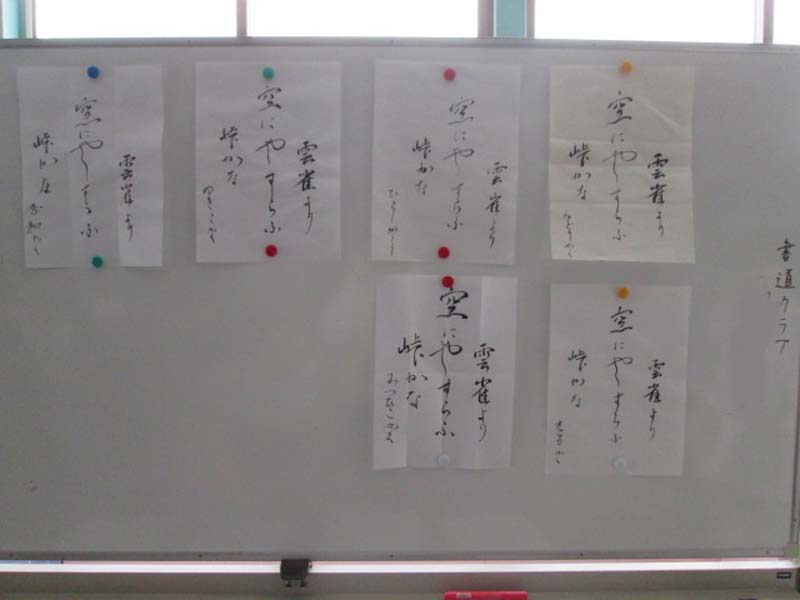 書道クラブ
雲雀より
空にやすらふ
峠かな
雲雀より
空にやすらふ
峠かな
雲雀より
空にやすらふ
峠かな
雲雀より
空にやすらふ
峠かな
雲雀より
空にやすらふ
峠かな
雲雀より
空にやすらふ
峠かな